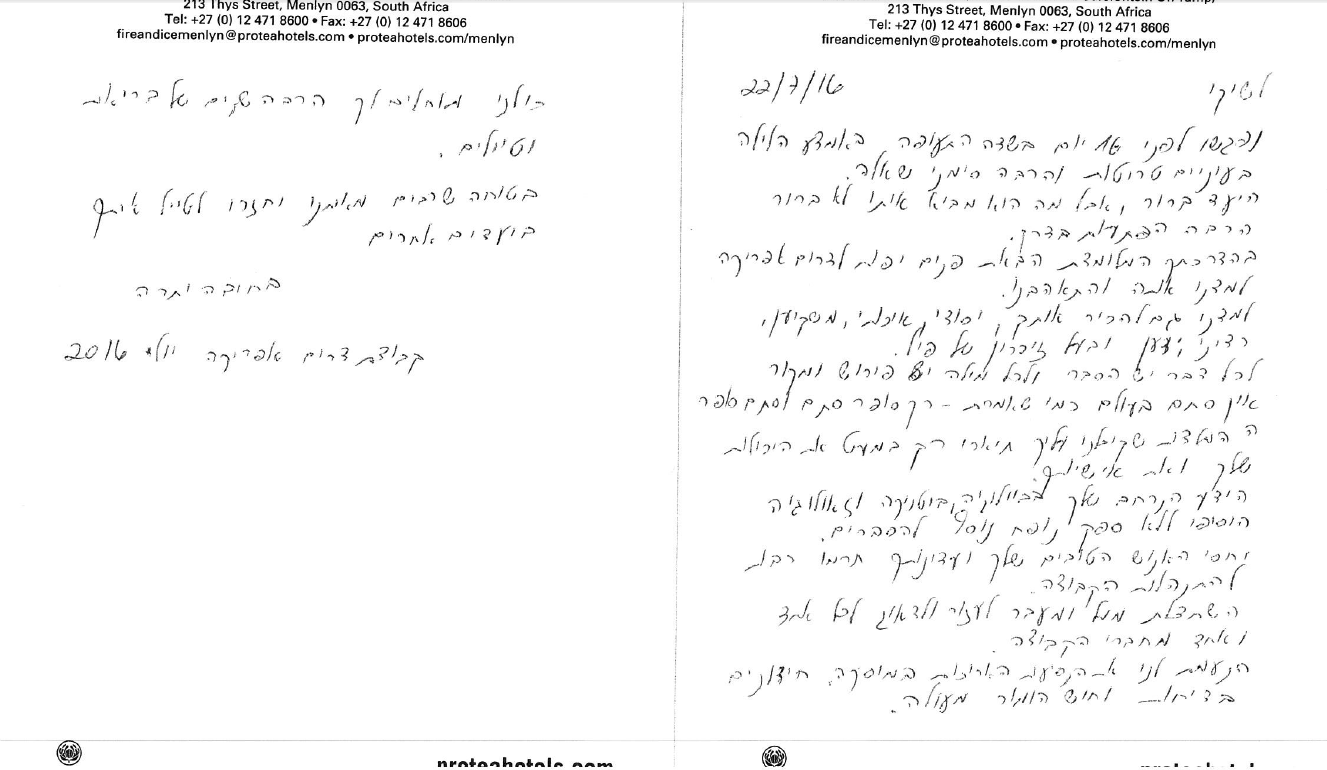 213 Thys Street, Menlyn 0063, South Africa
Tel: +27 (0) 12 471 8600 • Fax: +27 (0) 12 471 8606
fireandicemenlyn@proteahotels.com • proteahotels.com/menlyn
22/7/16
לשיקי
נפגשנו לפני 16 יום בשדה התעופה באמצע הלילה
בעיניים טרוטות והרבה סימני שאלה.
היעד ברור, אבל מה הוא מביא איתו לא ברור
הרבה הפתעות בדרך.
בהדרכתך המלומדת הבאת פנים יפות לדרום אפריקה
למדנו אותה והתאהבנו.
למדנו גם להכיר אותך, יסודי, איכותי, משקיען,
רציני, ידען ובעל זיכרון של פיל.
לכל דבר יש הסבר ולכל מילה יש פירוש ומקור
אין סתם בעולם כמו שאמרת - רק סופר סתם וסתם סופר
ה המלצות שקיבלנו עליך תיארו רק במעט את היכולות
שלך ואת אישיותך.
הידע הנרחב שלך בביולוגיה, בוטניקה וזאולוגיה
הוסיפו ללא ספק נופח נוסף להסברים.
יחסי האנוש הטובים שלך ועדינותך תרמו רבות
להתנהלות הקבוצה.
השתדלת מעל ומעבר לעזור ולדאוג לכל אחד
ואחד מחברי הקבוצה.
הנעמת לנו את הנסיעות הארוכות במוסיקה, חידונים
בדיחות וחוש הומור מעולה.
proteahotel
213 Thys Street, Menlyn 0063, South Africa
Tel: +27 (0) 12 471 8600 • Fax: +27 (0) 12 471 8606
fireandicemenlyn@proteahotels.com • proteahotels.com/menlyn
כולנו מאחלים לך הרבה שנים של בריאות
וטיולים.
בטוחה שרבים מאיתנו יחזרו לטייל איתך
ביעדים אחרים
בחיבה יתרה
קבוצת דרום אפריקה יולי 2016
proteahotels.com